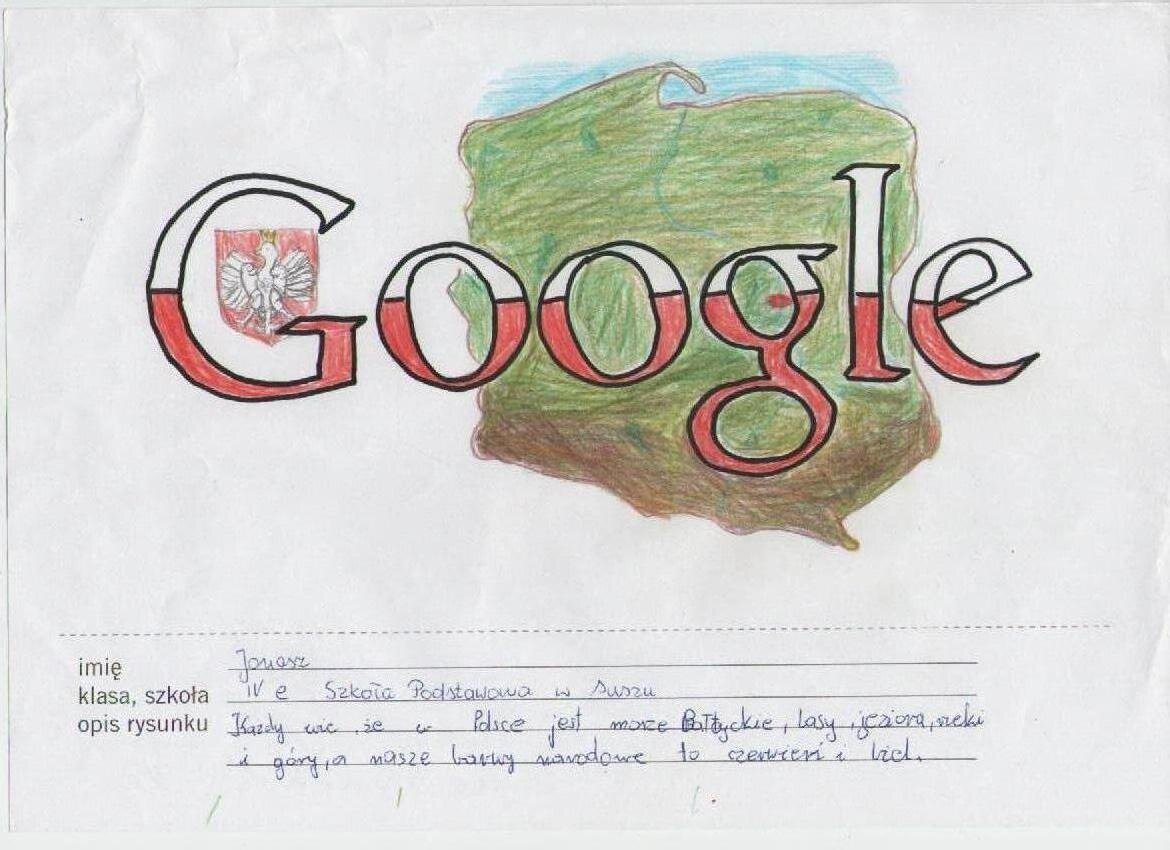 Google
imię Jonasz
klasa, szkoła IV e Szkoła Podstawowa w Suszu
opis rysunku Każdy wie, że w Polsce jest morze Bałtyckie, lasy, jeziora, rzeki
i góry, a nasze barwy narodowe to czerwień i biel.